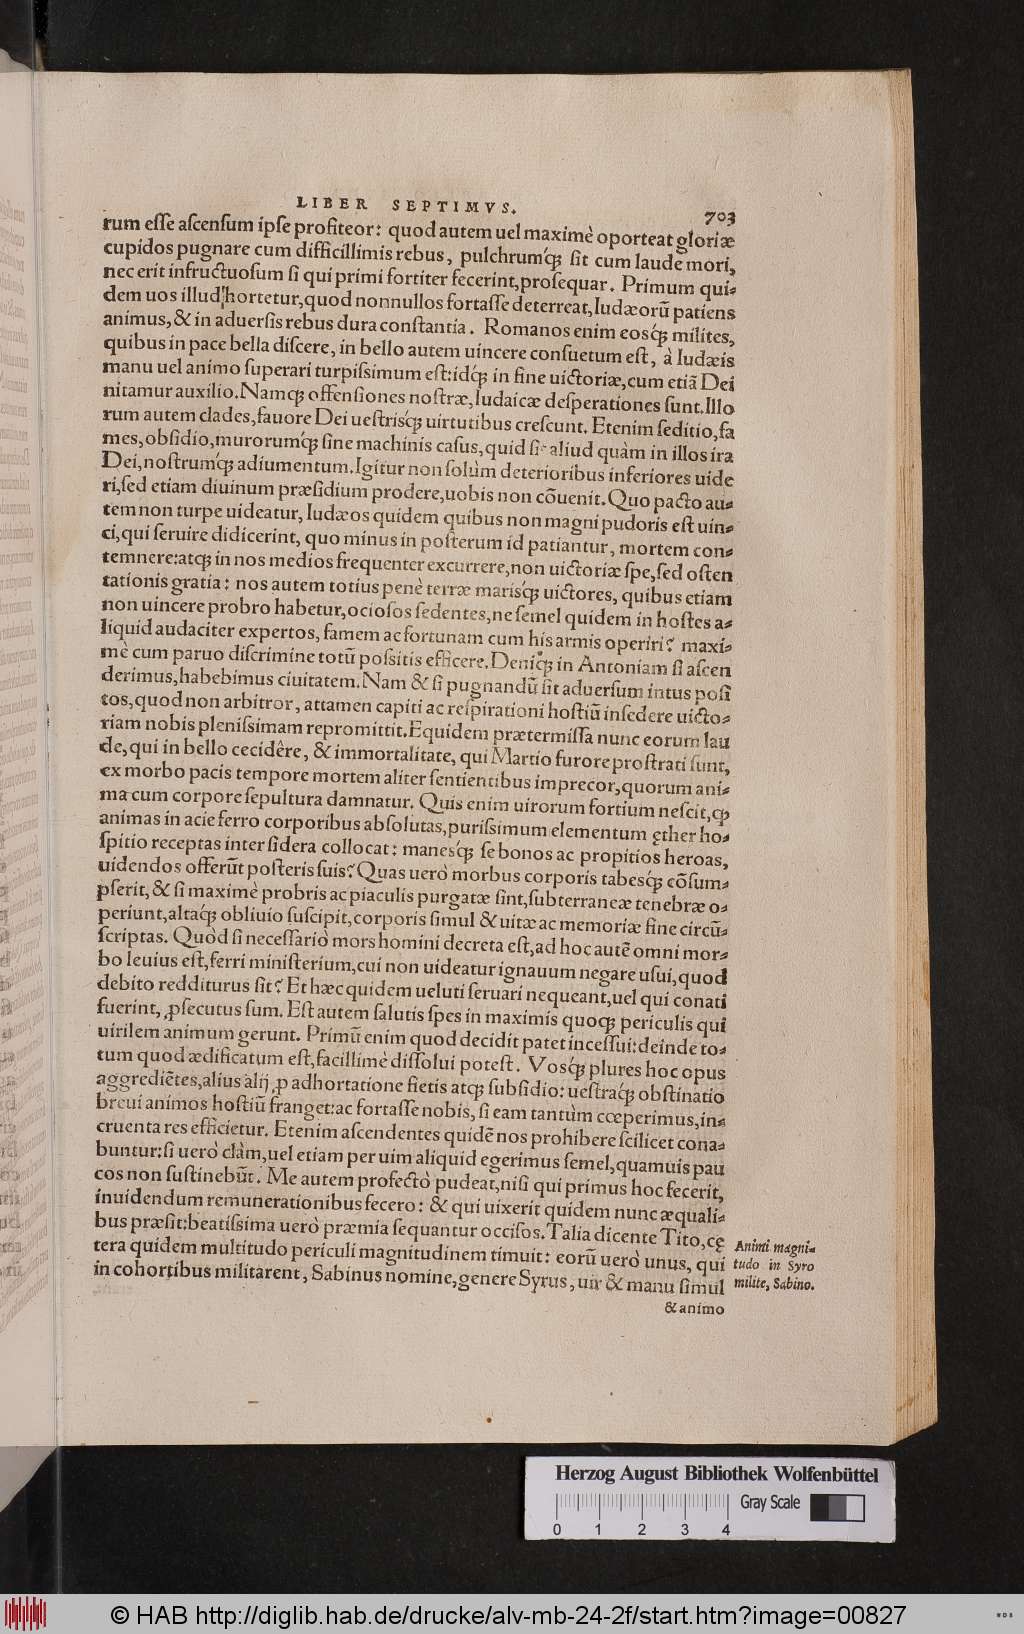 LIBER SEPTIMVS.
703
rum eſſe aſcenſum ipſe profiteor: quod autem uel maximè oporteat gloriæ
cupidos pugnare cum difficillimis rebus, pulchrumq́ꝫ ſit cum laude mori,
nec erit infructuoſum ſi qui primi fortiter fecerint, proſequar. Primum qui-
dem uos illud hortetur, quod nonnullos fortaſſe deterreat, Iudæorū patiens
animus, & in aduerſis rebus dura conſtantia. Romanos enim eosq́ꝫ milites,
quibus in pace bella diſcere, in bello autem uincere conſuetum eſt, à Iudæis
manu uel animo ſuperari turpiſsimum eſt: idq́ꝫ in fine uictoriæ, cum etiā Dei
nitamur auxilio. Namqꝫ offenſiones noſtræ, Iudaicæ deſperationes ſunt. Illo
rum autem clades, fauore Dei ueſtrisq́ꝫ uirtutibus creſcunt. Etenim ſeditio, fa
mes, obſidio, murorumq́ꝫ ſine machinis caſus, quid ſit aliud quàm in illos ira
Dei, noſtrumq́ꝫ adiumentum. Igitur non ſolùm deterioribus inferiores uide
ri, ſed etiam diuinum præſidium prodere, uobis non cōuenit. Quo pacto au-
tem non turpe uideatur, Iudæos quidem quibus non magni pudoris eſt uin-
ci, qui ſeruire didicerint, quo minus in poſterum id patiantur, mortem con-
temnere: atqꝫ in nos medios frequenter excurrere, non uictoriæ ſpe, ſed oſten
tationis gratia: nos autem totius penè terræ marisq́ꝫ uictores, quibus etiam
non uincere probro habetur, ocioſos ſedentes, ne ſemel quidem in hoſtes a-
liquid audaciter expertos, famem ac fortunam cum his armis operiri? maxi-
mè cum paruo diſcrimine totū poſsitis efficere. Deniqꝫ in Antoniam ſi aſcen
derimus, habebimus ciuitatem. Nam & ſi pugnandū ſit aduerſum intus poſi
tos, quod non arbitror, attamen capiti ac reſpirationi hoſtiū inſedere uicto-
riam nobis pleniſsimam repromittit. Equidem prætermiſſa nunc eorum lau
de, qui in bello cecidêre, & immortalitate, qui Martio furore proſtrati ſunt,
ex morbo pacis tempore mortem aliter ſentientibus imprecor, quorum ani-
ma cum corpore ſepultura damnatur. Quis enim uirorum fortium neſcit, ꝙ
animas in acie ferro corporibus abſolutas, puriſsimum elementum ęther ho-
ſpitio receptas inter ſidera collocat: manesq́ꝫ ſe bonos ac propitios heroas,
uidendos offerūt poſteris ſuis? Quas uerò morbus corporis tabesq́ꝫ cōſum-
pſerit, & ſi maximè probris ac piaculis purgatæ ſint, ſubterraneæ tenebræ o-
periunt, altaq́ꝫ obliuio ſuſcipit, corporis ſimul & uitæ ac memoriæ fine circū-
ſcriptas. Quòd ſi neceſſariò mors homini decreta eſt, ad hoc autē omni mor-
bo leuius eſt, ferri miniſterium, cui non uideatur ignauum negare uſui, quod
debito redditurus ſit? Et hæc quidem ueluti ſeruari nequeant, uel qui conati
fuerint, ꝓſecutus ſum. Eſt autem ſalutis ſpes in maximis quoqꝫ periculis qui
uirilem animum gerunt. Primū enim quod decidit patet inceſſui: deinde to-
tum quod ædificatum eſt, facillimè diſſolui poteſt. Vosq́ꝫ plures hoc opus
aggrediētes, alius alij ꝓ adhortatione fietis atqꝫ ſubſidio: ueſtraq́ꝫ obſtinatio
breui animos hoſtiū franget: ac fortaſſe nobis, ſi eam tantùm cœperimus, in-
cruenta res efficietur. Etenim aſcendentes quidē nos prohibere ſcilicet cona-
buntur: ſi uerò clàm, uel etiam per uim aliquid egerimus ſemel, quamuis pau
cos non ſuſtinebūt. Me autem profectò pudeat, niſi qui primus hoc fecerit,
inuidendum remunerationibus fecero: & qui uixerit quidem nunc æquali-
bus præſit: beatiſsima uerò præmia ſequantur occiſos. Talia dicente Tito, cę
tera quidem multitudo periculi magnitudinem timuit: eorū uerò unus, qui
in cohortibus militarent, Sabinus nomine, genere Syrus, uir & manu ſimul
Animi magni-
tudo in Syro
milite, Sabino.
& animo
Herzog August Bibliothek Wolfenbüttel
Gray Scale
0 1 2 3 4
© HAB http://diglib.hab.de/drucke/alv-mb-24-2f/start.htm?image=00827